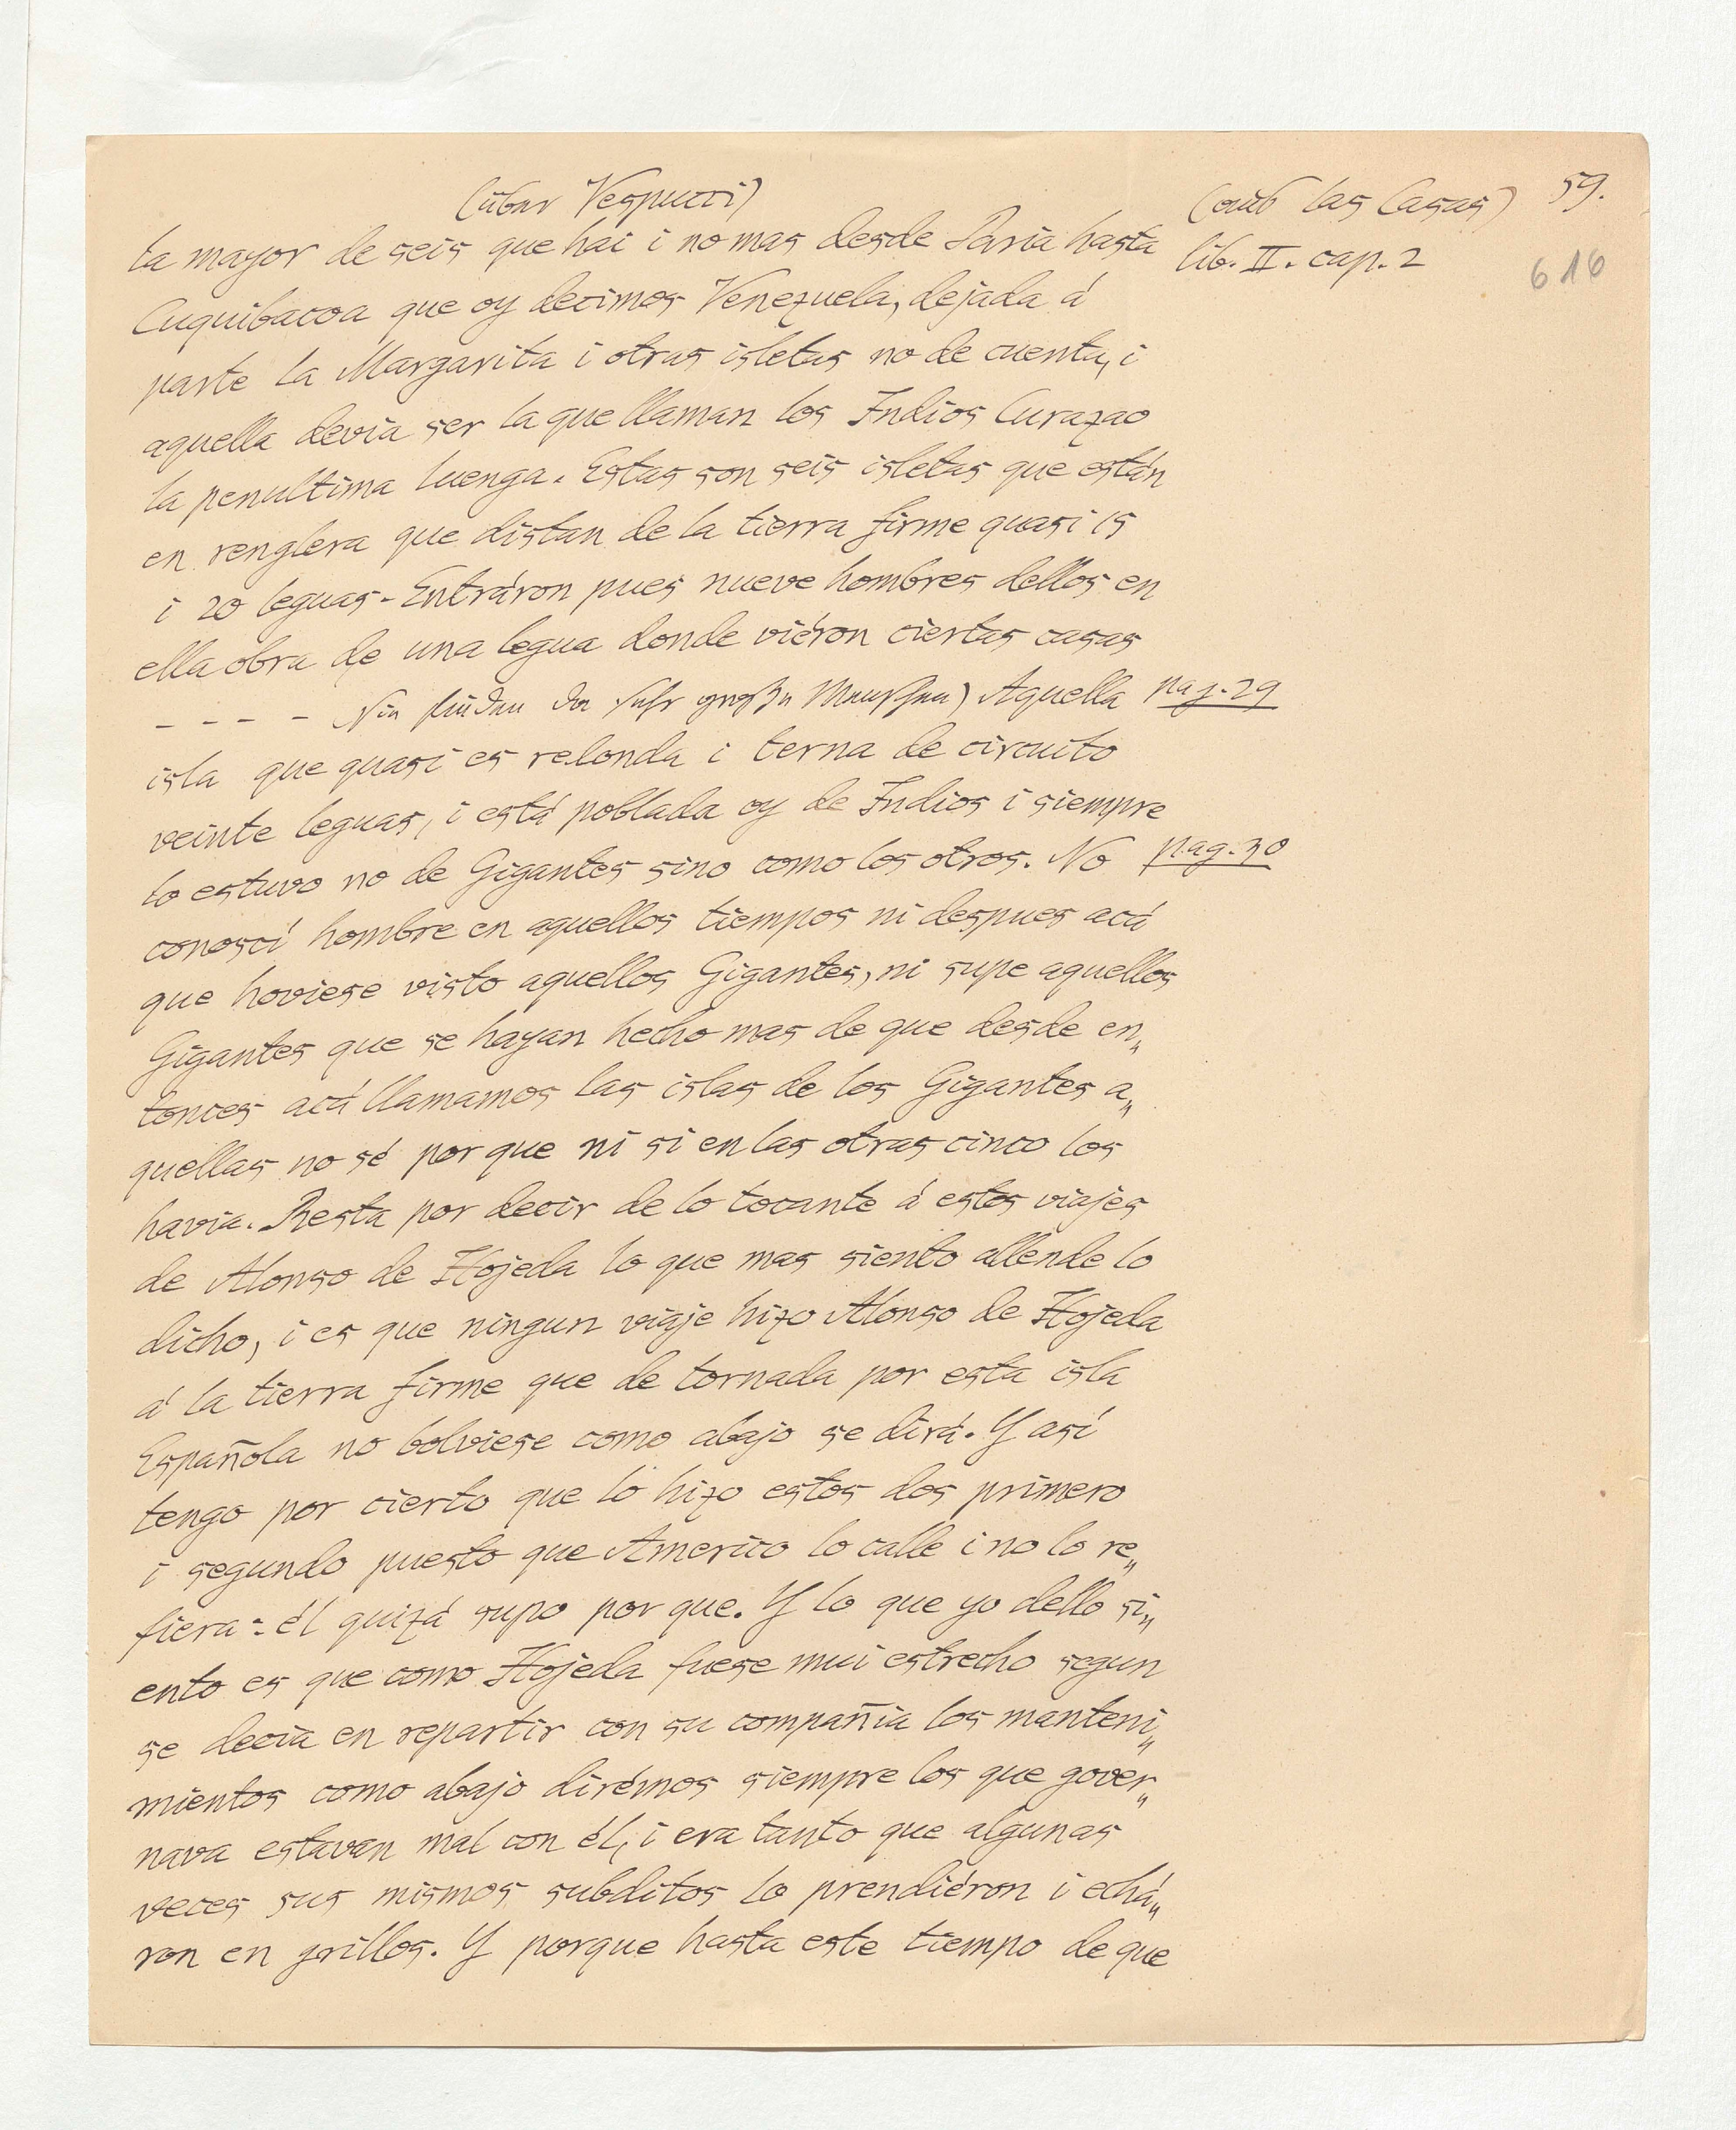 (über Vespucci)
(aus las Casas) 59.
616
la mayor de seis que hai i no mas desde Paria hasta
lib. II. cap. 2
Cuquibacoa que oy decimos Venezuela, dejada á
parte la Margarita i otras isletas no de cuenta, i
aquella devia ser la que llaman los Indios Curazao
la penultima luenga. Estas son seis isletas que están
en renglera que distan de la tierra firme quasi 15
i 20 leguas - Entráron pues nueve hombres dellos en
ella obra de una legua donde viéron ciertas casas
- - - - Sie finden da sehr große Menschen) Aquella pag. 29
isla que quasi es redonda i terna de circuito
veinte leguas, i está poblada oy de Indios i siempre
lo estuvo no de Gigantes sino como los otros. No pag. 30
conoscí hombre en aquellos tiempos ni despues acá
que hoviese visto aquellos Gigantes, ni supe aquellos
Gigantes que se hayan hecho mas de que desde en„
tonces acá llamamos las islas de los Gigantes a„
quellas no sé por que ni si en las otras cinco los
havia. Resta por decir de lo tocante á estos viajes
de Alonso de Hojeda lo que mas siento allende lo
dicho, i es que ningun viaje hizo Alonso de Hojeda
á la tierra firme que de tornada por esta isla
Española no bolviese como abajo se dirá. Y así
tengo por cierto que lo hizo estos dos primero
i segundo puesto que Americo lo calle i no lo re„
fiera: él quizá supo por que. Y lo que yo dello si„
ento es que como Hojeda fuese mui estrecho segun
se decia en repartir con su compañia los manteni„
mientos como abajo dirémos siempre los que gover„
nava estavan mal con él, i era tanto que algunas
veces sus mismos subditos lo prendiéron i echá„
ron en grillos. Y porque hasta este tiempo de que